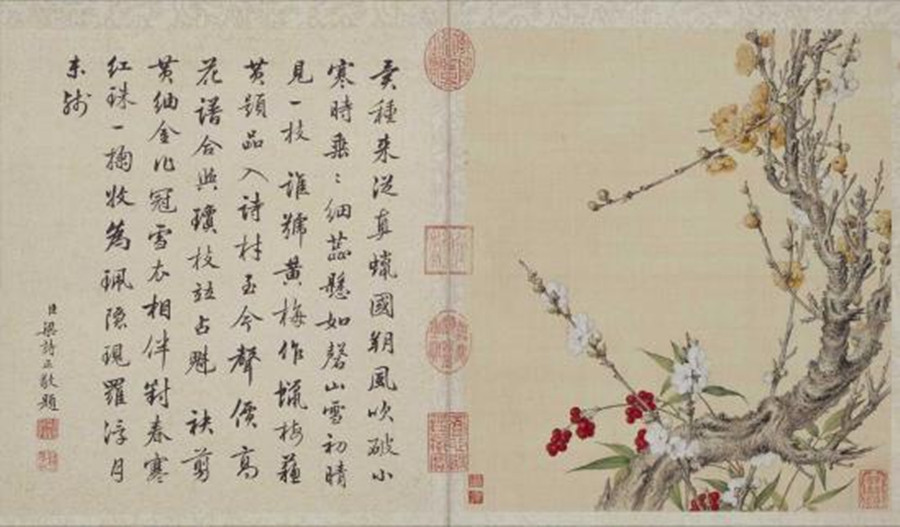 異種來從真蠟國朔風吹破小
寒時垂〻細蕊懸如磬山雪初晴
見一枝誰號黃梅作蠟梅蘇
黃題品入詩材至今聲價高
花譜合與瓊枝竝占魁袂剪
黃紬金作冠雪衣相伴對春寒
紅珠一掬收為珮隱現羅浮月
未殘
臣梁詩正敬題